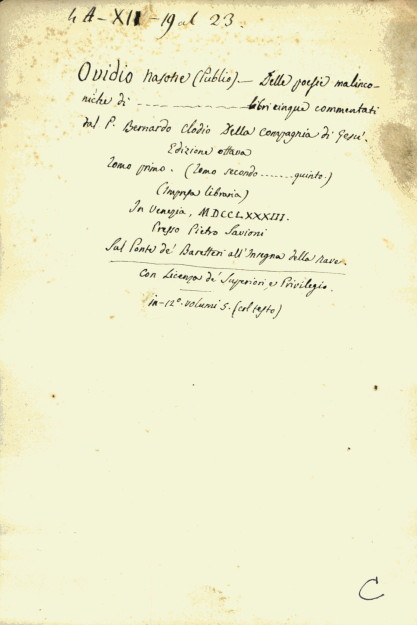 4A-XII-19 al 23.
Ovidio Nasone (Publio) — Delle poesie malinco-
niche di ---------- libri cinque commentati
dal P. Bernardo Clodio Della Compagnia di Gesù.
Edizione ottava
Tomo primo. (Tomo secondo.......quinto.)
(Impresa libraria)
In Venezia, MDCCLXXXIII.
Presso Pietro Savioni
Sul Ponte de' Baretteri all'Insegna della Nave.
Con Licenza de' Superiori e Privilegio.
in-12º. volumi 5. (col testo)
C